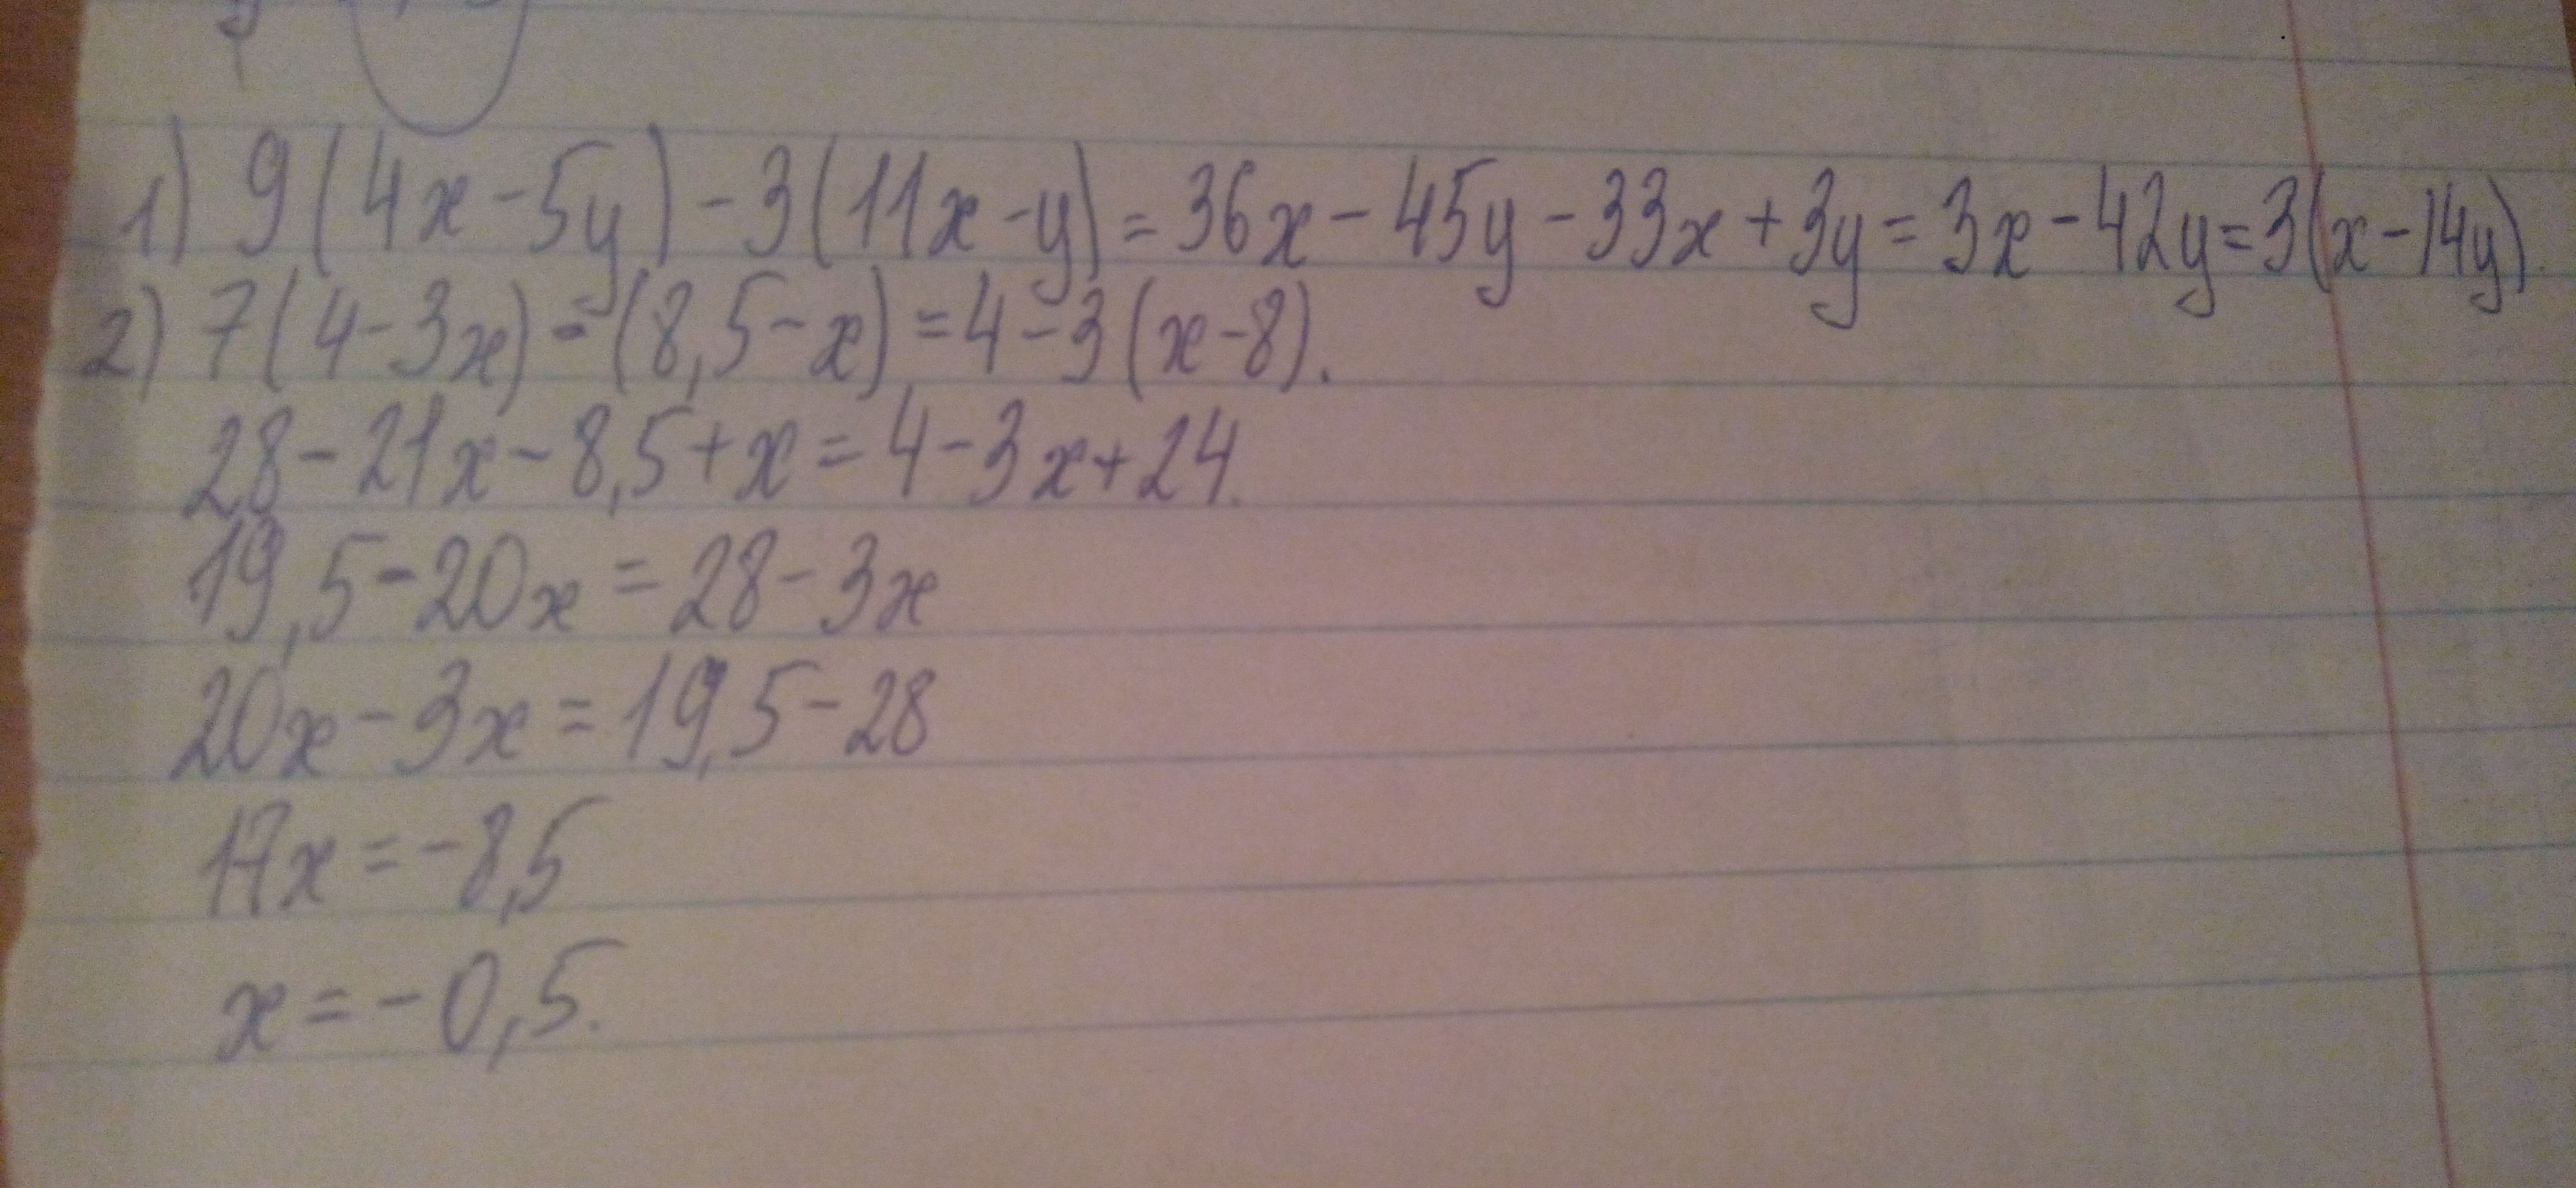 1) 9(4x-5y)-3(11x-y)=36x-45y-33x+3y=3x-42y=3(x-14y).
2) 7(4-3x)-(8,5-x)=4-3(x-8).
28-21x-8,5+x=4-3x+24.
19,5-20x=28-3x
20x-3x=19,5-28
17x=-8,5
x=-0,5.